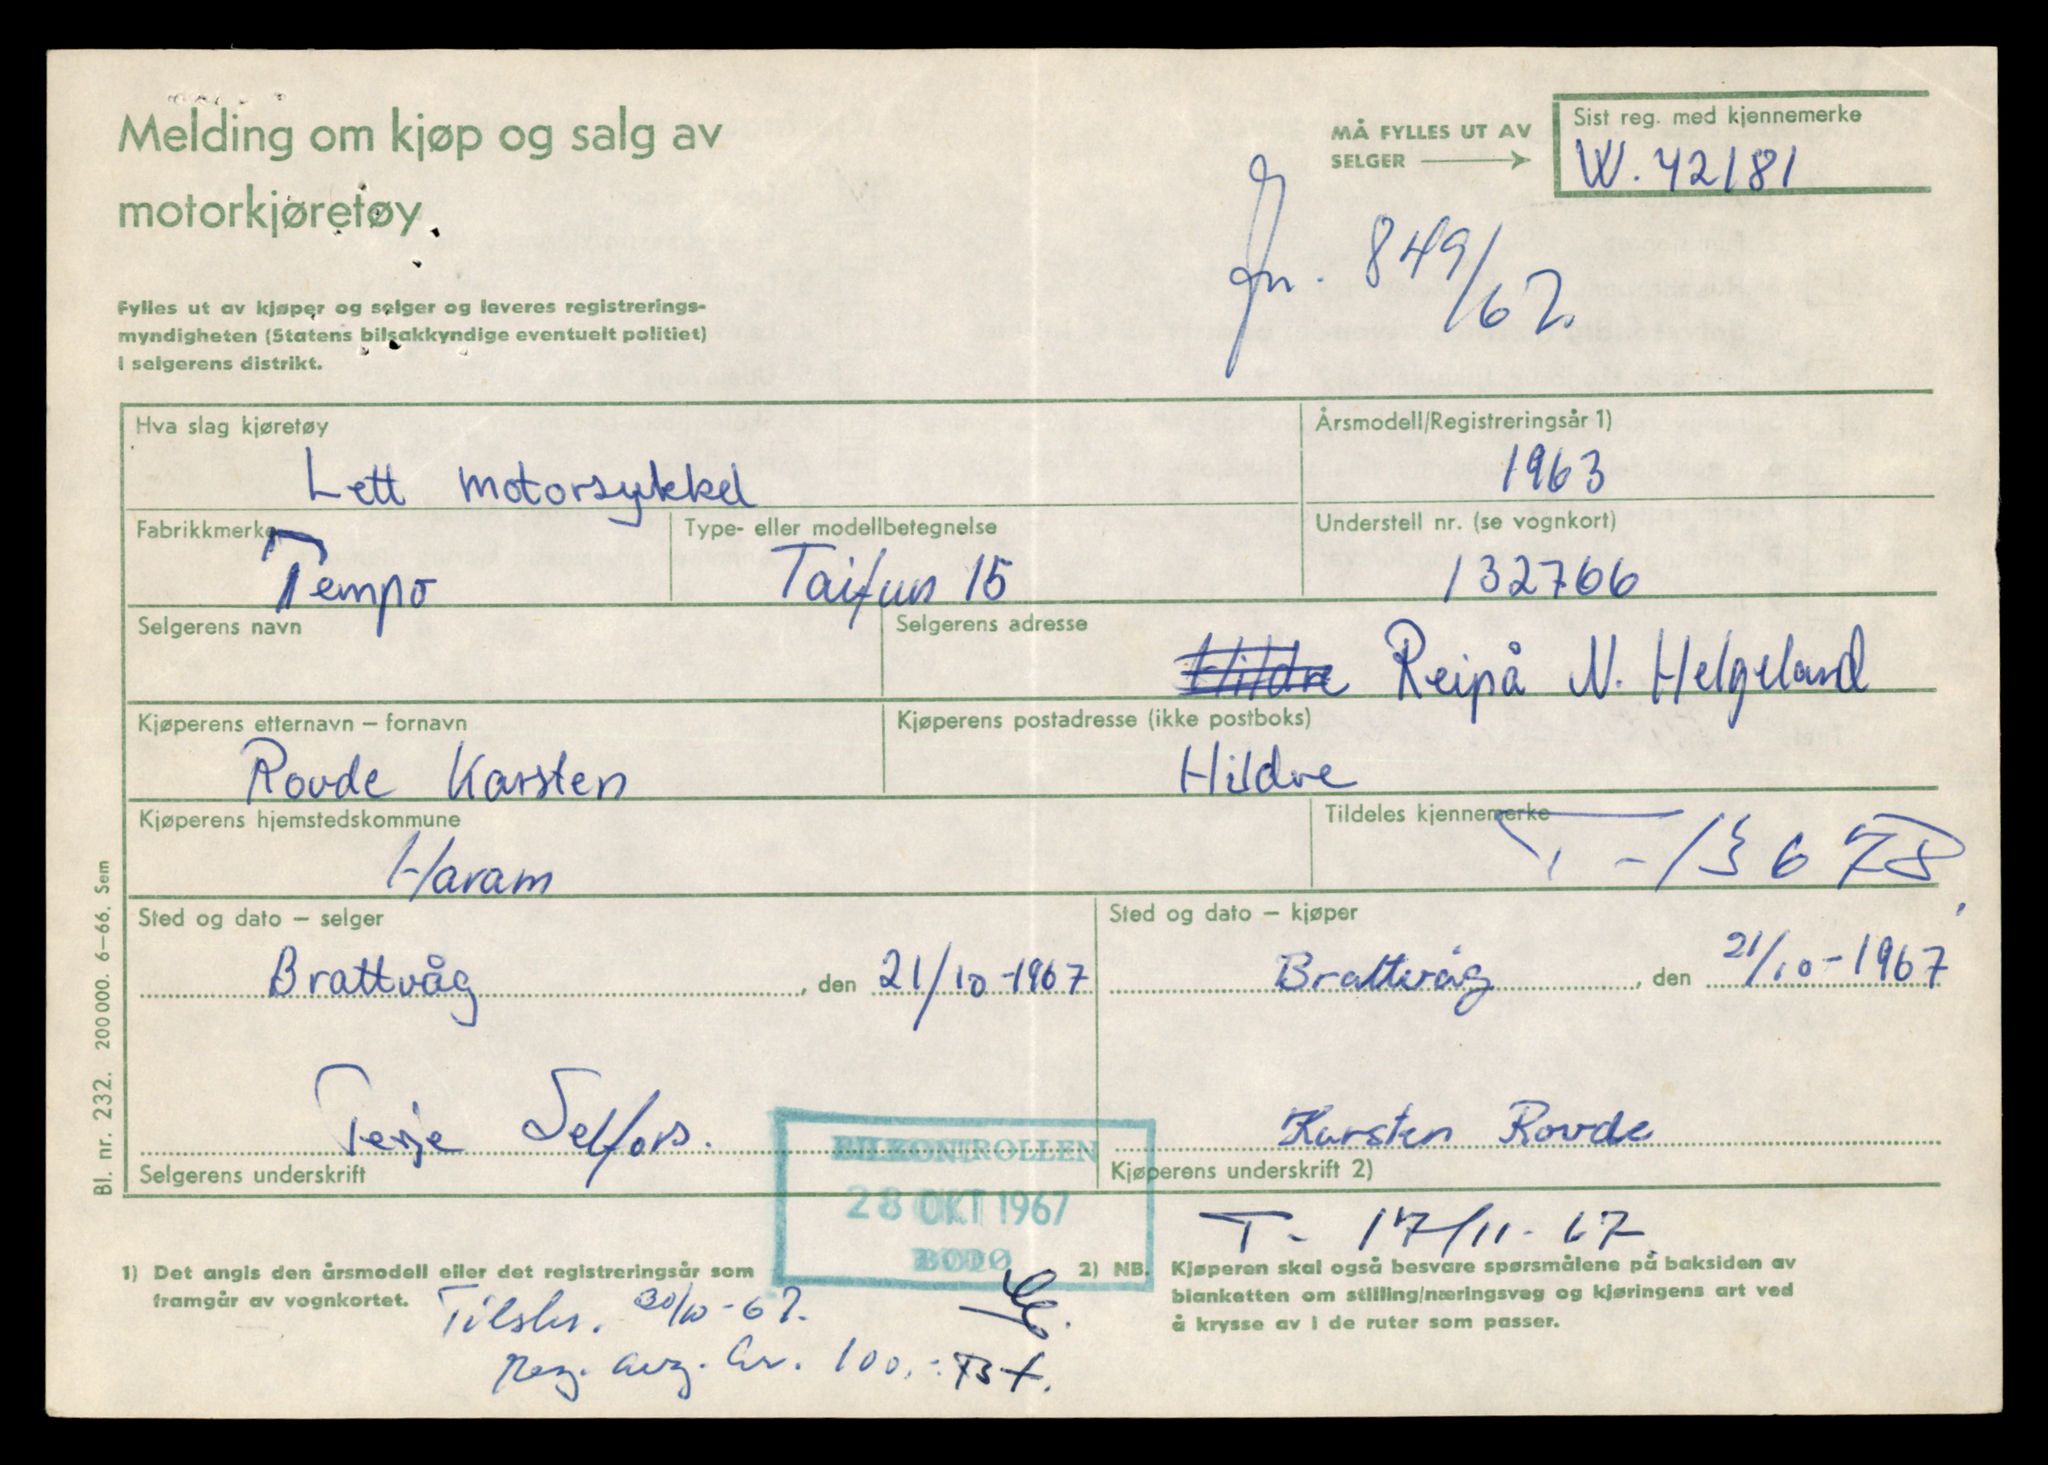 Melding om kjøp og salg av
motorkjøretøy
MÅ FYLLES UT AV
SELGER
Sist reg. med kjennemerke
W. 42181
Jnr. 849/67.
Fylles ut av kjøper og selger og leveres registrerings-
myndigheten (Statens bilsakkyndige eventuelt politiet)
i selgerens distrikt.
Hva slag kjøretøy
Lett motorsykkel
Årsmodell/Registreringsår 1)
1963
Fabrikkmerke
Tempo
Type- eller modellbetegnelse
Taifun 15
Understell nr. (se vognkort)
132766
Selgerens navn
Selgerens adresse
Hildre Reipå N. Helgeland
Kjøperens etternavn – fornavn
Rovde Karsten
Kjøperens postadresse (ikke postboks)
Hildre
Kjøperens hjemstedskommune
Haram
Tildeles kjennemerke
T - 13678
Sted og dato – selger
Brattvåg, den 21/10-1967
Sted og dato – kjøper
Brattvåg, den 21/10-1967
Terje Selfors.
Selgerens underskrift
Karsten Rovde
Kjøperens underskrift 2)
BILKONTROLLEN
28 OKT 1967
BODØ
T - 17/11-67.
1) Det angis den årsmodell eller det registreringsår som
framgår av vognkortet.
2) NB. Kjøperen skal også besvare spørsmålene på baksiden av
blanketten om stilling/næringsveg og kjøringens art ved
å krysse av i de ruter som passer.
Tilskr. 30/10-67.
Reg. avg. kr. 100,-
Bl. nr. 232. 200 000. 6–66. Sem